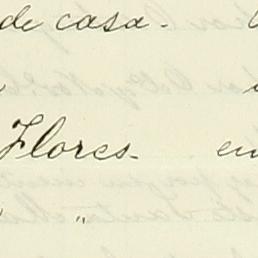 de casa.
Flores- en
"